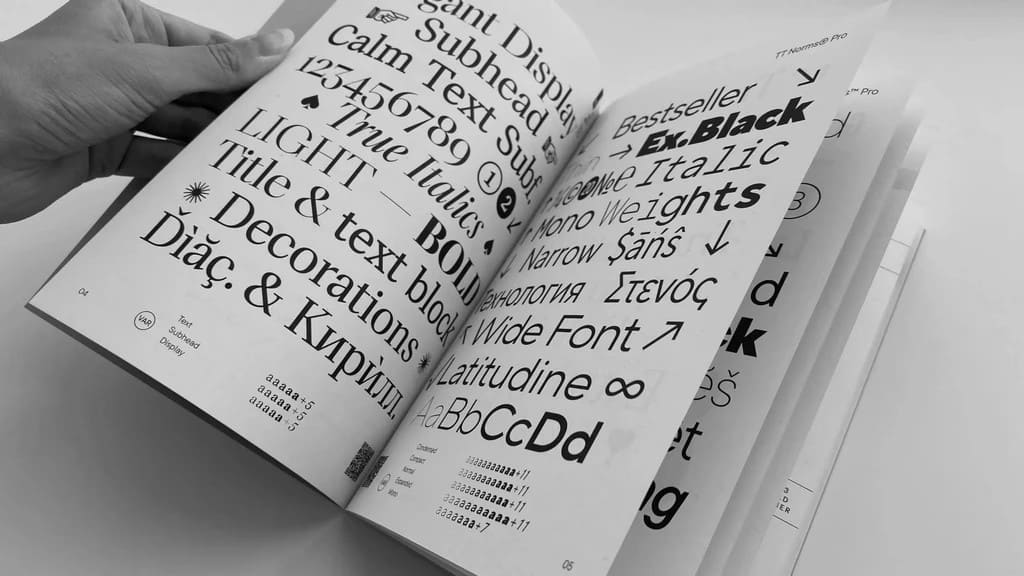 gant Display
☞ Subhead
Calm Text Subf.
1234567890 ① ❷
♠ True Italics ♠
LIGHT — BOLD
Title & text block
✺ Decorations ✺
Ďìăç. & Кирѝлл.
04
VAR
Text
Subhead
Display
aaaaa+5
aaaaa+5
aaaaa+5
TT Norms® Pro
Bestseller ↘
→ Ex.Black
№ Italic
Mono Weights
Narrow $āńŝ ↓
Технология Στενός
Wide Font ↗
Latitudine ∞
AaBbCcDd
Condensed
Compact
Normal
Expanded
Mono
aaaaaaaaaaa+11
aaaaaaaaaaa+11
aaaaaaaaaaa+11
aaaaaaaaaaa+11
aaaaaaa+7
05
™ Pro
d
③
d
k
ëš
et
ng